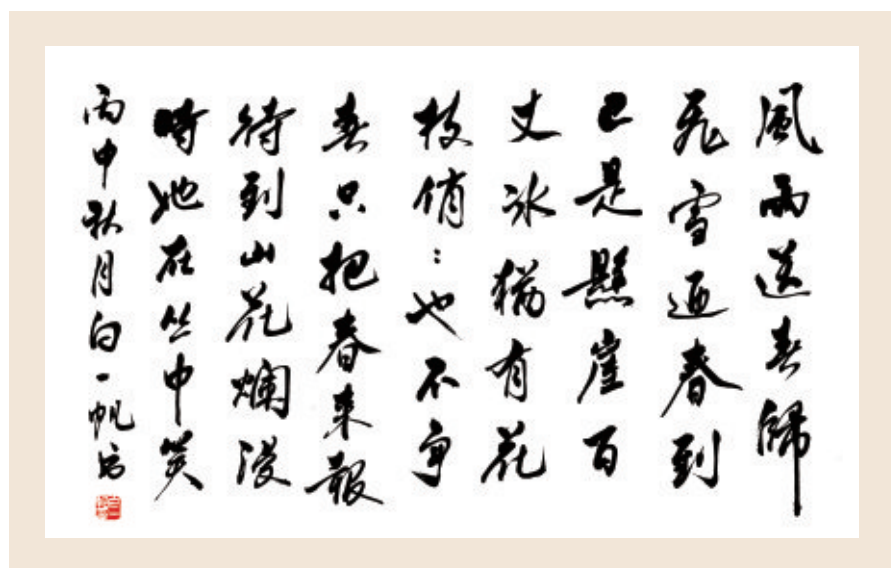 風雨送春歸
飛雪迎春到
已是懸崖百
丈冰猶有花
枝俏:也不争
春只把春來報
待到山花爛漫
時她在丛中笑
丙申秋月白一帆书